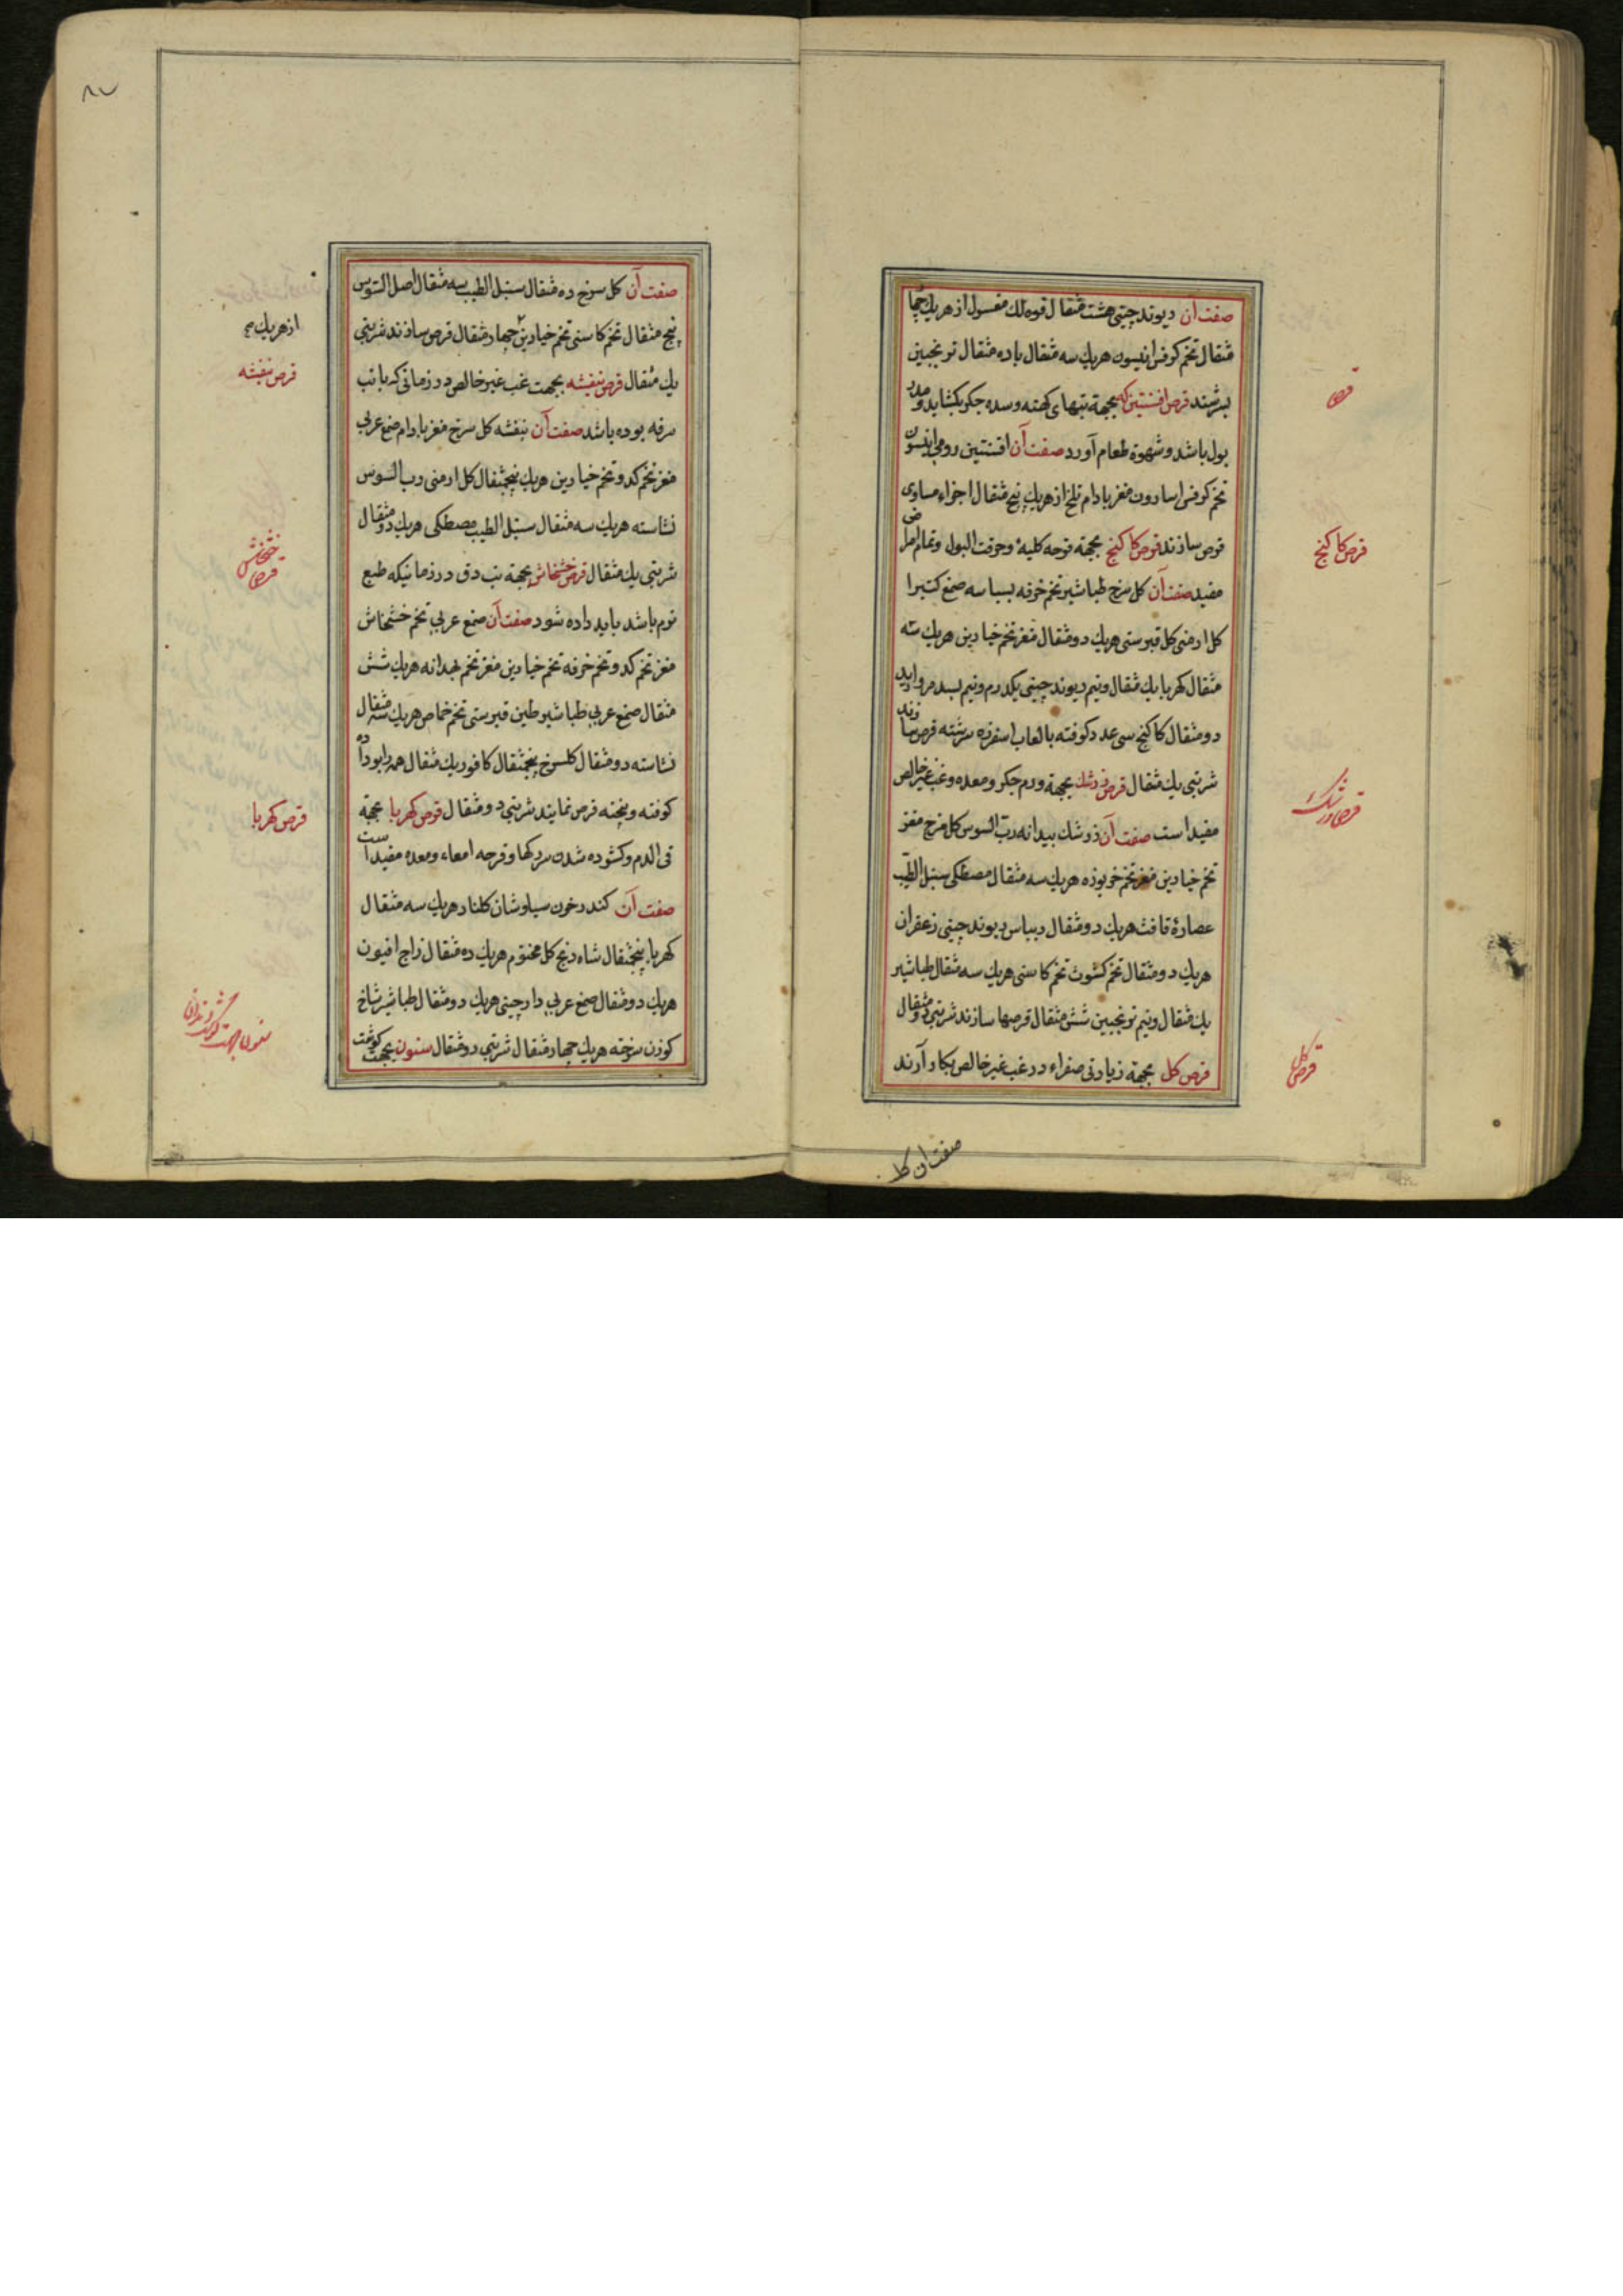 صفت آن ریوند چینی هشت مثقال فوه لك مغسول از هریك چها
مثقال تخم كرفس انیسون هریك سه مثقال باده مثقال ترنجبین
بسرشند قرص افسنتین كه بجهة تبهای كهنه وسده جكر بكشاید ومدر
بول باشد وشهوة طعام آورد صفت آن افسنتین رومی انیسون
تخم كرفس اسارون مغز بادام تلخ از هریك پنج مثقال اجزاء مساوی
قرص سازند قرص كاكنج بجهة قرحه كلیه وحرقت البول وتمام امراض
مفید صفت آن كل سرخ طباشیر تخم خرفه بسباسه صمغ كتیرا
كل ارمنی كل قبرسی هریك دو مثقال مغز تخم خیارین هریك سه
مثقال كهربا یك مثقال ونیم ریوند چینی یكدرم ونیم بسد مروارید
دو مثقال كاكنج سی عدد كوفته بالعاب اسفرزه سرشته قرص سازند
شربتی یك مثقال قرص زرشك بجهة ورم جكر ومعده وغب غیر خالص
مفید است صفت آن زرشك بیدانه رب السوس كل سرخ مغز
تخم خیارین مغز تخم خربوزه هریك سه مثقال مصطكی سنبل الطیب
عصارهٔ غافث هریك دو مثقال ریباس ریوند چینی زعفران
هریك دو مثقال تخم كشوث تخم كاسنی هریك سه مثقال طباشیر
یك مثقال ونیم ترنجبین شش مثقال قرصها سازند شربتی دو مثقال
قرص كل بجهة زیادتی صفراء در غب غیر خالص بكار آرند
قرص
قرص كاكنج
قرص زرشك
قرص كل
صفت ان كل
۸۷
صفت آن كل سرخ ده مثقال سنبل الطیب سه مثقال اصل السوس
پنج مثقال تخم كاسنی تخم خیارین چهار مثقال قرص سازند شربتی
یك مثقال قرص بنفشه بجهت غب غیر خالص در زمانی كه با تب
سرفه بوده باشد صفت آن بنفشه كل سرخ مغز بادام صمغ عربی
مغز تخم كدو تخم خیارین هریك پنجمثقال كل ارمنی رب السوس
نشاسته هریك سه مثقال سنبل الطیب مصطكی هریك دو مثقال
شربتی یك مثقال قرص خشخاش بجهة تب دق در زمانیكه طبع
نرم باشد باید داده شود صفت آن صمغ عربی تخم خشخاش
مغز تخم كدو تخم خرفه تخم خیارین مغز تخم بهدانه هریك شش
مثقال صمغ عربی طباشیر طین قبرسی تخم حماض هریك سه مثقال
نشاسته دو مثقال كلسرخ پنجمثقال كافور یك مثقال همه را بوداده
كوفته وپخته قرص نمایند شربتی دو مثقال قرص كهربا بجهة
قی الدم وكشوده شدن سر ركها وقرحه امعاء ومعده مفید است
صفت آن كندر خون سیاوشان كلنار هریك سه مثقال
كهربا پنجمثقال شادنج كل مختوم هریك ده مثقال زاج افیون
هریك دو مثقال صمغ عربی دارچینی هریك دو مثقال طباشیر شاخ
كوزن سوخته هریك چهار مثقال شربتی دو مثقال سنون بجهت كوشت
از هریك
قرص بنفشه
قرص خشخاش
قرص كهربا
سنون بجهت كوشت دندان